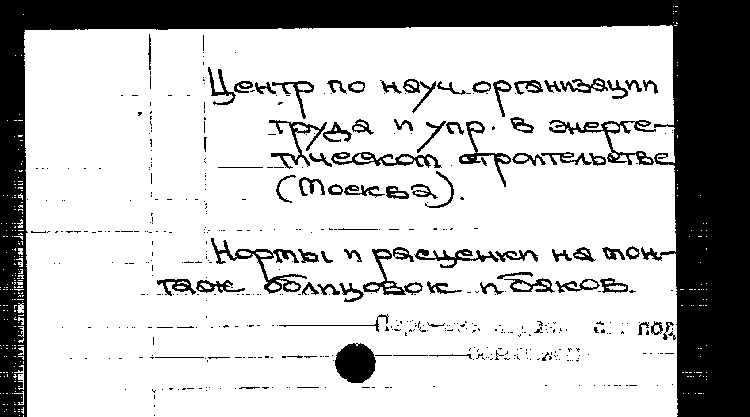 Центр по науч. организации
труда и упр. в энерге-
тическом строительстве
(Москва).
Нормы и расценки на мон-
таж облицовок и баков.
под